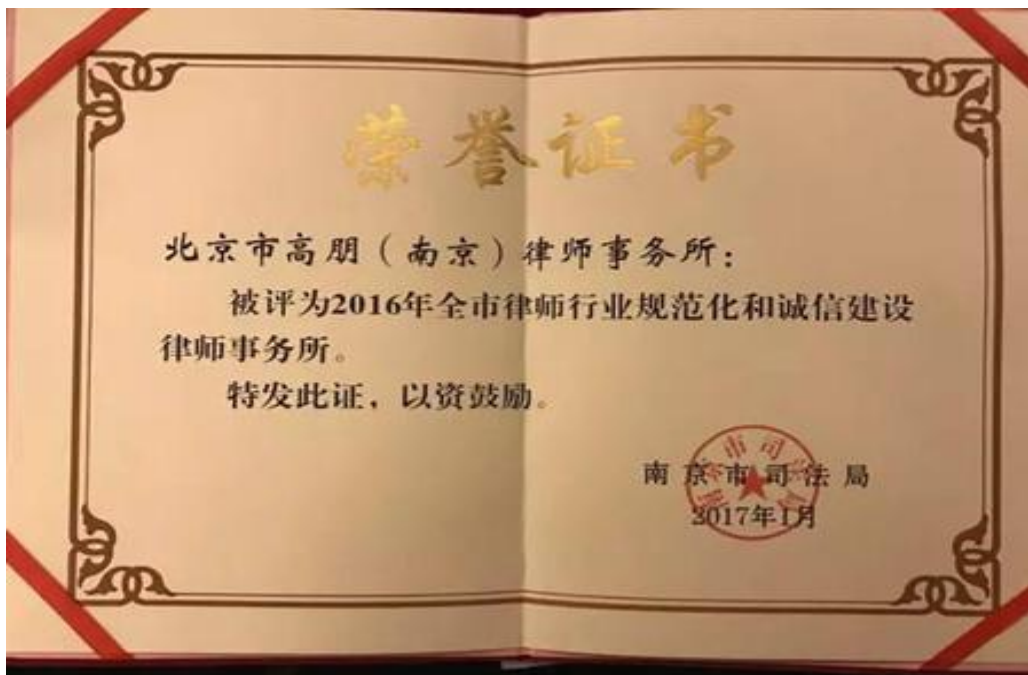 荣誉证书
北京市高朋（南京）律师事务所：
被评为2016年全市律师行业规范化和诚信建设
律师事务所。
特发此证，以资鼓励。
南京市司法局
南京市司法局
2017年1月